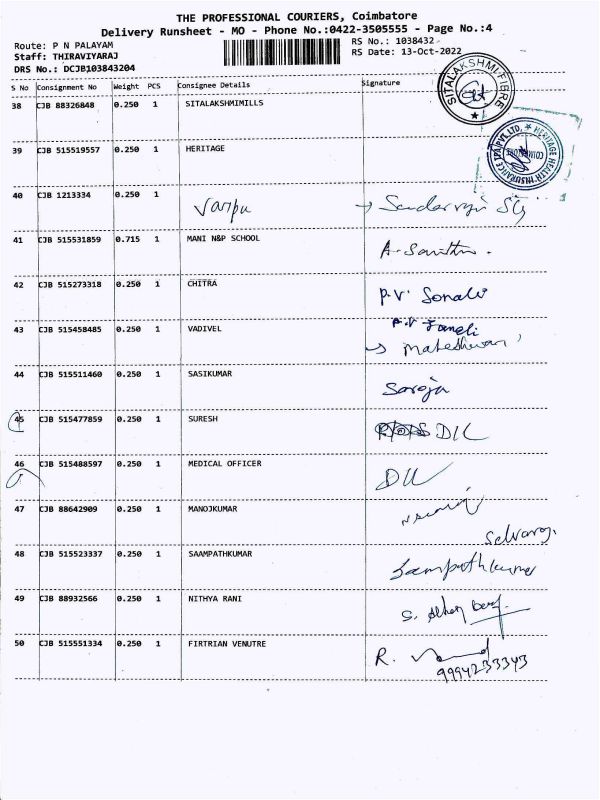 THE PROFESSIONAL COURIERS, Coimbatore
Delivery Runsheet - MO - Phone No.:0422-3505555 - Page No.:4
Route: P N PALAYAM
RS No.: 1038432
Staff: THIRAVIYARAJ
RS Date: 13-Oct-2022
DRS No.: DCJB103843204
S No Consignment No Weight PCS Consignee Details Signature
38 CJB 88326848 0.250 1 SITALAKSHMIMILLS
SITALAKSHMI FIBRE
39 CJB 515519557 0.250 1 HERITAGE
HERITAGE HEALTH INSURANCE TPA PVT. LTD.
40 CJB 1213334 0.250 1
41 CJB 515531859 0.715 1 MANI N&P SCHOOL
42 CJB 515273318 0.250 1 CHITRA P.V. Sonali
43 CJB 515458485 0.250 1 VADIVEL
Maheshwari
44 CJB 515511460 0.250 1 SASIKUMAR Saroja
45 CJB 515477859 0.250 1 SURESH D/L
46 CJB 515488597 0.250 1 MEDICAL OFFICER D/L
47 CJB 88642909 0.250 1 MANOJKUMAR
Selvaraj.
48 CJB 515523337 0.250 1 SAAMPATHKUMAR Sampathkumar
49 CJB 88932566 0.250 1 NITHYA RANI
50 CJB 515551334 0.250 1 FIRTRIAN VENUTRE R.
9994233343